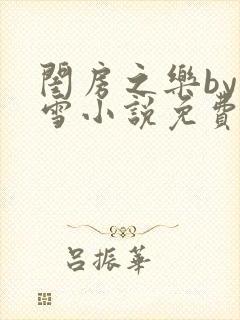 閨房之樂by
雪小說免費
呂振華